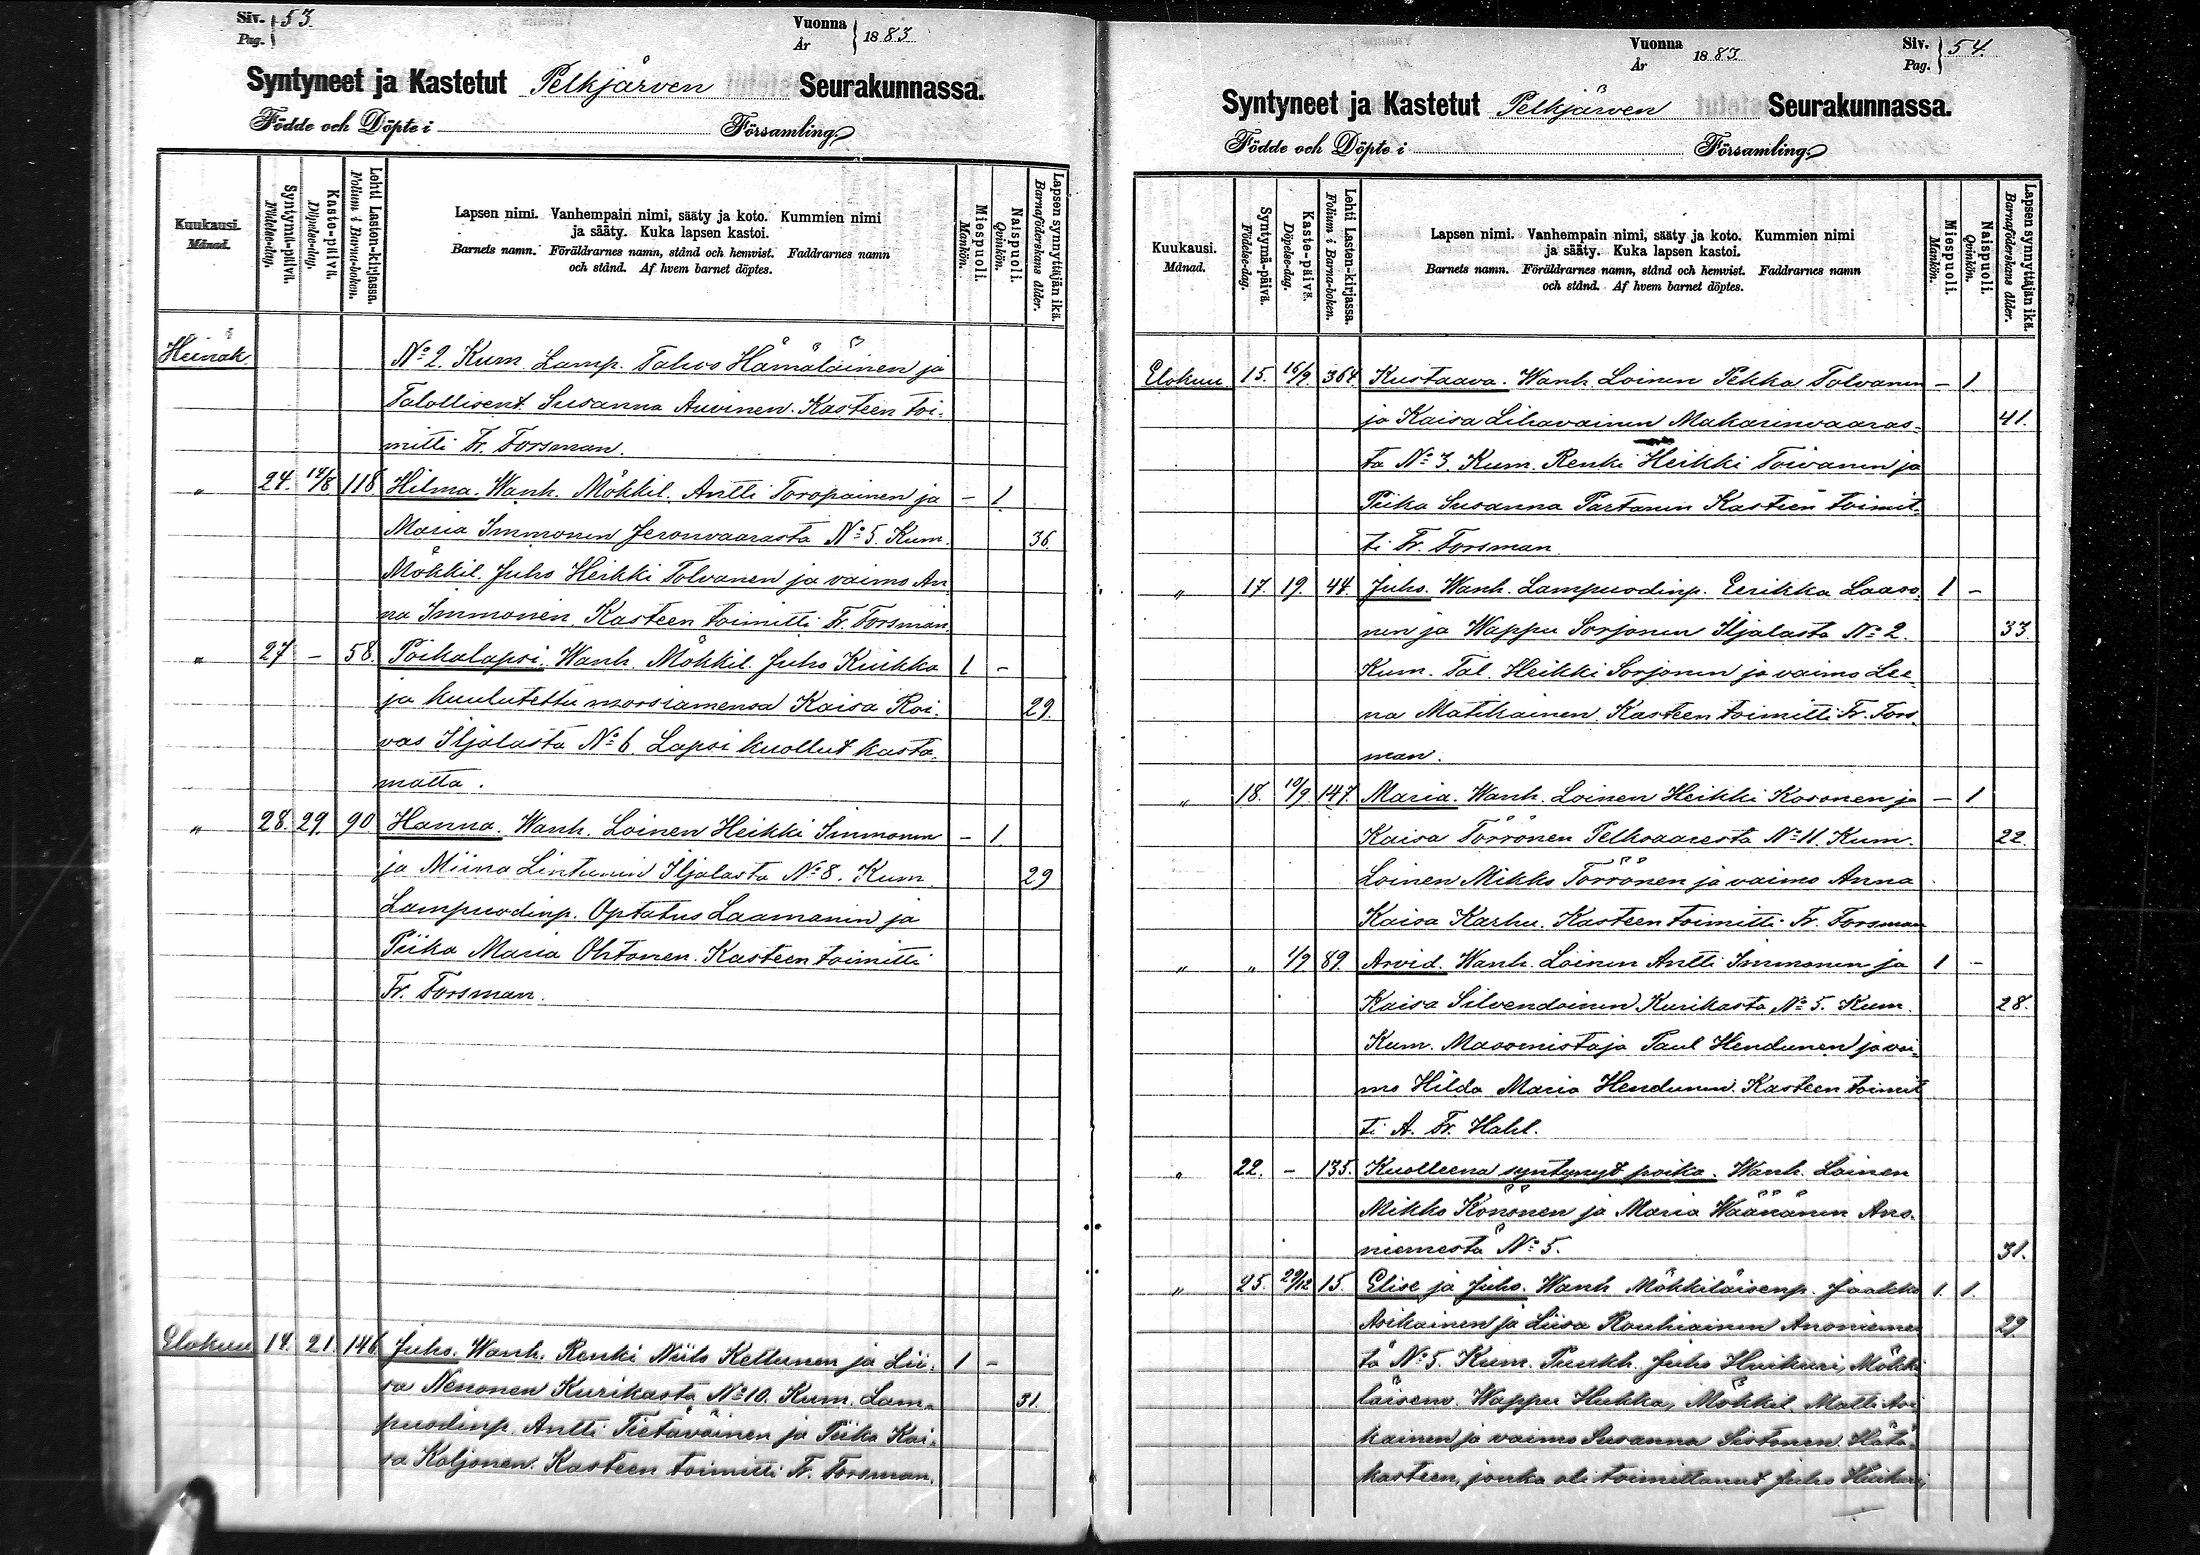 Siv. Pag. } 53.
Vuonna År } 1883
Syntyneet ja Kastetut Pelkjärven Seurakunnassa.
Födde och Döpte i Församling
Kuukausi. Månad.
Syntymä-päivä. Födelse-dag.
Kaste-päivä. Döpelse-dag.
Lehti Lasten-kirjassa. Folium i Barna-boken.
Lapsen nimi. Vanhempain nimi, sääty ja koto. Kummien nimi
ja sääty. Kuka lapsen kastoi.
Barnets namn. Föräldrarnes namn, stånd och hemvist. Faddrarnes namn
och stånd. Af hvem barnet döptes.
Miespuoli. Mankön.
Naispuoli. Qvinkön.
Lapsen synnyttäjän ikä. Barnaföderskans ålder.
Heinäk. No 2. Kum. Lamp. Tahvo Hämäläinen ja
Talollisent. Susanna Auvinen. Kasteen toi-
mitti Fr. Forsman.
" 24. 14/8 118 Hilma. Wanh. Mökkil. Antti Toropainen ja – 1.
Maria Immonen Jeronvaarasta No 5. Kum. 36.
Mökkil. Juho Heikki Tolvanen ja vaimo An
na Immonen. Kasteen toimitti Fr. Forsman.
" 27 – 58. Poikalapsi. Wanh. Mökkil. Juho Kuikka 1 –
ja kuulutettu morsiamensa Kaisa Roi- 29.
vas Iljalasta No 6. Lapsi kuollut kasta-
matta.
" 28. 29. 90 Hanna. Wanh. Loinen Heikki Immonen – 1
ja Miina Lintunen Iljalasta No 8. Kum. 29
Lampuodinp. Optatus Laamanen ja
Piika Maria Ohtonen. Kasteen toimitti
Fr. Forsman.
Elokuu 14. 21. 146. Juho. Wanh. Renki Niilo Kettunen ja Lii- 1 –
sa Nenonen Kurikasta No 10. Kum. Lam- 31.
puodinp. Antti Tietäväinen ja Piika Kai-
sa Koljonen. Kasteen toimitti Fr. Forsman.
Vuonna År 1883.
Siv. Pag. } 54.
Syntyneet ja Kastetut Pelkjärven Seurakunnassa.
Födde och Döpte i Församling
Kuukausi. Månad.
Syntymä-päivä. Födelse-dag.
Kaste-päivä. Döpelse-dag.
Lehti Lasten-kirjassa. Folium i Barna-boken.
Lapsen nimi. Vanhempain nimi, sääty ja koto. Kummien nimi
ja sääty. Kuka lapsen kastoi.
Barnets namn. Föräldrarnes namn, stånd och hemvist. Faddrarnes namn
och stånd. Af hvem barnet döptes.
Miespuoli. Mankön.
Naispuoli. Qvinkön.
Lapsen synnyttäjän ikä. Barnaföderskans ålder.
Elokuu 15. 16/9 364 Kustaava. Wanh. Loinen Pekka Tolvanen – 1
ja Kaisa Lihavainen Makarinvaaras- 41.
ta No 3. Kum. Renki Heikki Toivanen ja
Piika Susanna Partanen Kasteen toimit-
ti Fr. Forsman.
" 17. 19. 44. Juho. Wanh. Lampuodinp. Eerikka Laaso- 1 –
nen ja Wappu Sorjonen Iljalasta No 2. 33
Kum. Tal. Heikki Sorjonen ja vaimo Lee-
na Matikainen. Kasteen toimitti Fr. Fors
man.
" 18. 10/9 147. Maria. Wanh. Loinen Heikki Kosonen ja – 1
Kaisa Törrönen Pelkosaaresta No 11. Kum. 22.
Loinen Mikko Törrönen ja vaimo Anna
Kaisa Karhu. Kasteen toimitti Fr. Forsman
" " 1/9 89. Arvid. Wanh. Loinen Antti Immonen ja 1 –
Kaisa Silvendoinen Kurikasta No 5. Kum. 28.
Kum. Maaomistaja Paul Hendunen ja vai-
mo Hilda Maria Hendunen. Kasteen toimit
ti A. Fr. Hahl.
" 22. – 135. Kuolleena syntynyt poika. Wanh. Loinen
Mikko Könönen ja Maria Wäänänen Ano-
niemestä No 5. 31.
" 25. 29/12 15. Elise ja Juho. Wanh Mökkiläisenp. Jaakko 1. 1.
Avikainen ja Liisa Rouhiainen Anoniemes 29
tä No 5. Kum. Juho Huikuri, Mökki
läisenv. Wappu Hukka, Mökkil. Matti Avi
kainen ja vaimo Susanna Sistonen. Hätä-
kasteen, jonka oli toimittanut Juho Huikuri,